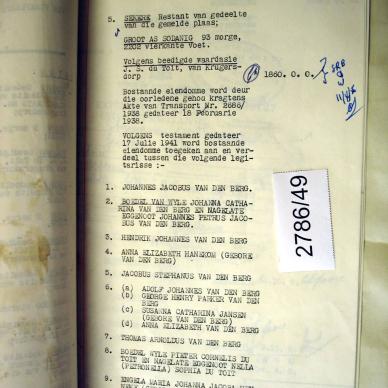 5. SEKERE Restant van gedeelte
van die gemelde plaas;
GROOT AS SODANIG 93 morge,
2202 vierkante voet.
Volgens beedigde waardasie
J. S. du Toit, van Krugers-
dorp
1860. 0. 0.
Bostaande eiendomme word deur
die oorledene gehou kragtens
Akte van Transport Nr. 2686/
1938 gedateer 18 Februarie
1938.
VOLGENS testament gedateer
17 Julie 1941 word bostaande
eiendomme toegeken aan en ver-
deel tussen die volgende legi-
tarisse :-
1. JOHANNES JACOBUS VAN DEN BERG.
2. BOEDEL VAN WYLE JOHANNA CATHA-
RINA VAN DEN BERG EN NAGELATE
EGGENOOT JOHANNES PETRUS JACO-
BUS VAN DEN BERG.
3. HENDRIK JOHANNES VAN DEN BERG
4. ANNA ELIZABETH HANEKOM (GEBORE
VAN DEN BERG)
5. JACOBUS STEPHANUS VAN DEN BERG
6. (a) ADOLF JOHANNES VAN DEN BERG
(b) GEORGE HENRY PARKER VAN DEN
BERG
(c) SUSANNA CATHARINA JANSEN
(GEBORE VAN DEN BERG)
(d) ANNA ELIZABETH VAN DEN BERG
7. THOMAS ARNOLDUS VAN DEN BERG
8. BOEDEL WYLE PIETER CORNELIS DU
TOIT EN NAGELATE EGGENOOT NELLA
(PETRONELLA) SOPHIA DU TOIT
9. ENGELA MARIA JOHANNA
2786/49